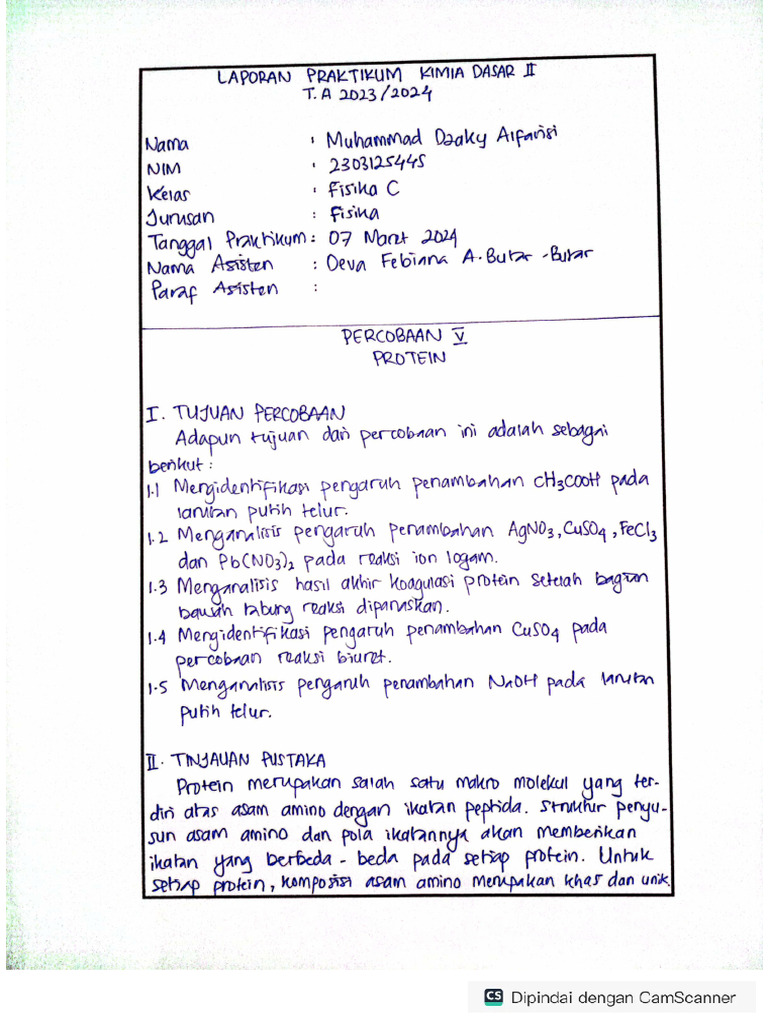 LAPORAN PRAKTIKUM KIMIA DASAR II
T.A 2023/2024
Nama : Muhammad Dzaky Alfarisi
NIM : 2303125445
Kelas : Fisika C
Jurusan : Fisika
Tanggal Praktikum : 07 Maret 2024
Nama Asisten : Deva Febiana A. Butar-Butar
Paraf Asisten :
PERCOBAAN V
PROTEIN
I. TUJUAN PERCOBAAN
Adapun tujuan dari percobaan ini adalah sebagai
berikut :
1.1 Mengidentifikasi pengaruh penambahan CH3COOH pada
larutan putih telur.
1.2 Menganalisis pengaruh penambahan AgNO3, CuSO4, FeCl3
dan Pb(NO3)2 pada reaksi ion logam.
1.3 Menganalisis hasil akhir koagulasi protein setelah bagian
bawah tabung reaksi dipanaskan.
1.4 Mengidentifikasi pengaruh penambahan CuSO4 pada
percobaan reaksi biuret.
1.5 Menganalisis pengaruh penambahan NaOH pada larutan
putih telur.
II. TINJAUAN PUSTAKA
Protein merupakan salah satu makro molekul yang ter-
diri atas asam amino dengan ikatan peptida. Struktur penyu-
sun asam amino dan pola ikatannya akan memberikan
ikatan yang berbeda - beda pada setiap protein. Untuk
setiap protein, komposisi asam amino merupakan khas dan unik.
CS Dipindai dengan CamScanner